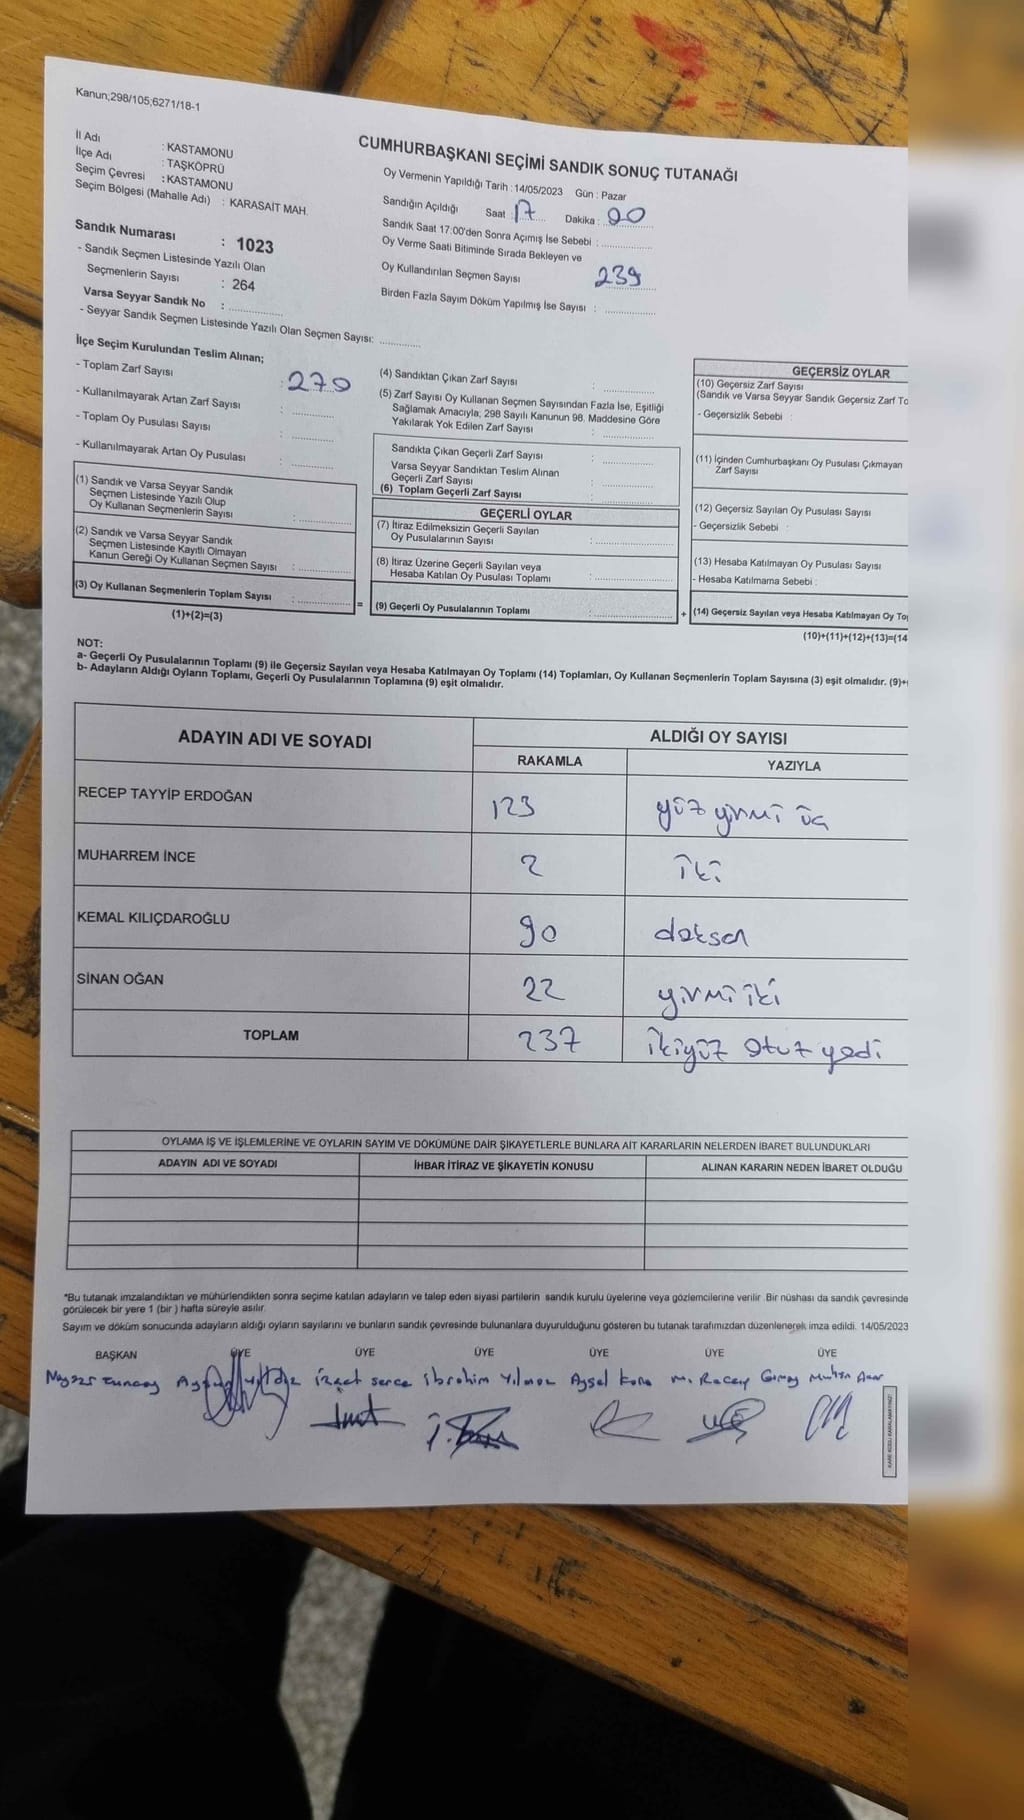 Kanun;298/105;6271/18-1
CUMHURBAŞKANI SEÇİMİ SANDIK SONUÇ TUTANAĞI
İl Adı : KASTAMONU
İlçe Adı : TAŞKÖPRÜ
Seçim Çevresi : KASTAMONU
Seçim Bölgesi (Mahalle Adı) : KARASAİT MAH.
Oy Vermenin Yapıldığı Tarih : 14/05/2023 Gün : Pazar
Sandığın Açıldığı Saat : 17 Dakika : 00
Sandık Saat 17:00'den Sonra Açımış İse Sebebi :
Oy Verme Saati Bitiminde Sırada Bekleyen ve
Oy Kullandırılan Seçmen Sayısı 239
Birden Fazla Sayım Döküm Yapılmış İse Sayısı :
Sandık Numarası : 1023
- Sandık Seçmen Listesinde Yazılı Olan
Seçmenlerin Sayısı : 264
Varsa Seyyar Sandık No :
- Seyyar Sandık Seçmen Listesinde Yazılı Olan Seçmen Sayısı:
İlçe Seçim Kurulundan Teslim Alınan;
- Toplam Zarf Sayısı : 270
- Kullanılmayarak Artan Zarf Sayısı :
- Toplam Oy Pusulası Sayısı :
- Kullanılmayarak Artan Oy Pusulası :
(1) Sandık ve Varsa Seyyar Sandık
Seçmen Listesinde Yazılı Olup
Oy Kullanan Seçmenlerin Sayısı :
(2) Sandık ve Varsa Seyyar Sandık
Seçmen Listesinde Kayıtlı Olmayan
Kanun Gereği Oy Kullanan Seçmen Sayısı :
(3) Oy Kullanan Seçmenlerin Toplam Sayısı :
(1)+(2)=(3)
=
(4) Sandıktan Çıkan Zarf Sayısı :
(5) Zarf Sayısı Oy Kullanan Seçmen Sayısından Fazla İse, Eşitliği
Sağlamak Amacıyla, 298 Sayılı Kanunun 98. Maddesine Göre
Yakılarak Yok Edilen Zarf Sayısı :
Sandıkta Çıkan Geçerli Zarf Sayısı :
Varsa Seyyar Sandıktan Teslim Alınan
Geçerli Zarf Sayısı :
(6) Toplam Geçerli Zarf Sayısı :
GEÇERLİ OYLAR
(7) İtiraz Edilmeksizin Geçerli Sayılan
Oy Pusulalarının Sayısı :
(8) İtiraz Üzerine Geçerli Sayılan veya
Hesaba Katılan Oy Pusulası Toplamı :
(9) Geçerli Oy Pusulalarının Toplamı :
+
GEÇERSİZ OYLAR
(10) Geçersiz Zarf Sayısı
(Sandık ve Varsa Seyyar Sandık Geçersiz Zarf To
- Geçersizlik Sebebi :
(11) İçinden Cumhurbaşkanı Oy Pusulası Çıkmayan
Zarf Sayısı
(12) Geçersiz Sayılan Oy Pusulası Sayısı
- Geçersizlik Sebebi :
(13) Hesaba Katılmayan Oy Pusulası Sayısı
- Hesaba Katılmama Sebebi :
(14) Geçersiz Sayılan veya Hesaba Katılmayan Oy To
(10)+(11)+(12)+(13)=(14
NOT:
a- Geçerli Oy Pusulalarının Toplamı (9) ile Geçersiz Sayılan veya Hesaba Katılmayan Oy Toplamı (14) Toplamları, Oy Kullanan Seçmenlerin Toplam Sayısına (3) eşit olmalıdır. (9)+
b- Adayların Aldığı Oyların Toplamı, Geçerli Oy Pusulalarının Toplamına (9) eşit olmalıdır.
ADAYIN ADI VE SOYADI ALDIĞI OY SAYISI
RAKAMLA YAZIYLA
RECEP TAYYİP ERDOĞAN 123 yüz yirmi üç
MUHARREM İNCE 2 iki
KEMAL KILIÇDAROĞLU 90 doksan
SİNAN OĞAN 22 yirmi iki
TOPLAM 237 ikiyüz otuz yedi
OYLAMA İŞ VE İŞLEMLERİNE VE OYLARIN SAYIM VE DÖKÜMÜNE DAİR ŞİKAYETLERLE BUNLARA AİT KARARLARIN NELERDEN İBARET BULUNDUKLARI
ADAYIN ADI VE SOYADI İHBAR İTİRAZ VE ŞİKAYETİN KONUSU ALINAN KARARIN NEDEN İBARET OLDUĞU
*Bu tutanak imzalandıktan ve mühürlendikten sonra seçime katılan adayların ve talep eden siyasi partilerin sandık kurulu üyelerine veya gözlemcilerine verilir .Bir nüshası da sandık çevresinde
görülecek bir yere 1 (bir ) hafta süreyle asılır.
Sayım ve döküm sonucunda adayların aldığı oyların sayılarını ve bunların sandık çevresinde bulunanlara duyurulduğunu gösteren bu tutanak tarafımızdan düzenlenerek imza edildi. 14/05/2023
BAŞKAN ÜYE ÜYE ÜYE ÜYE ÜYE ÜYE
İzzet serce ibrahim Yılmaz Aysel Kara M. Recep